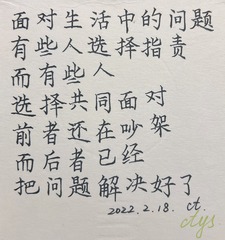 面对生活中的问题
有些人选择指责
而有些人
选择共同面对
前者还在吵架
而后者已经
把问题解决好了
2022.2.18. ct.
ctys